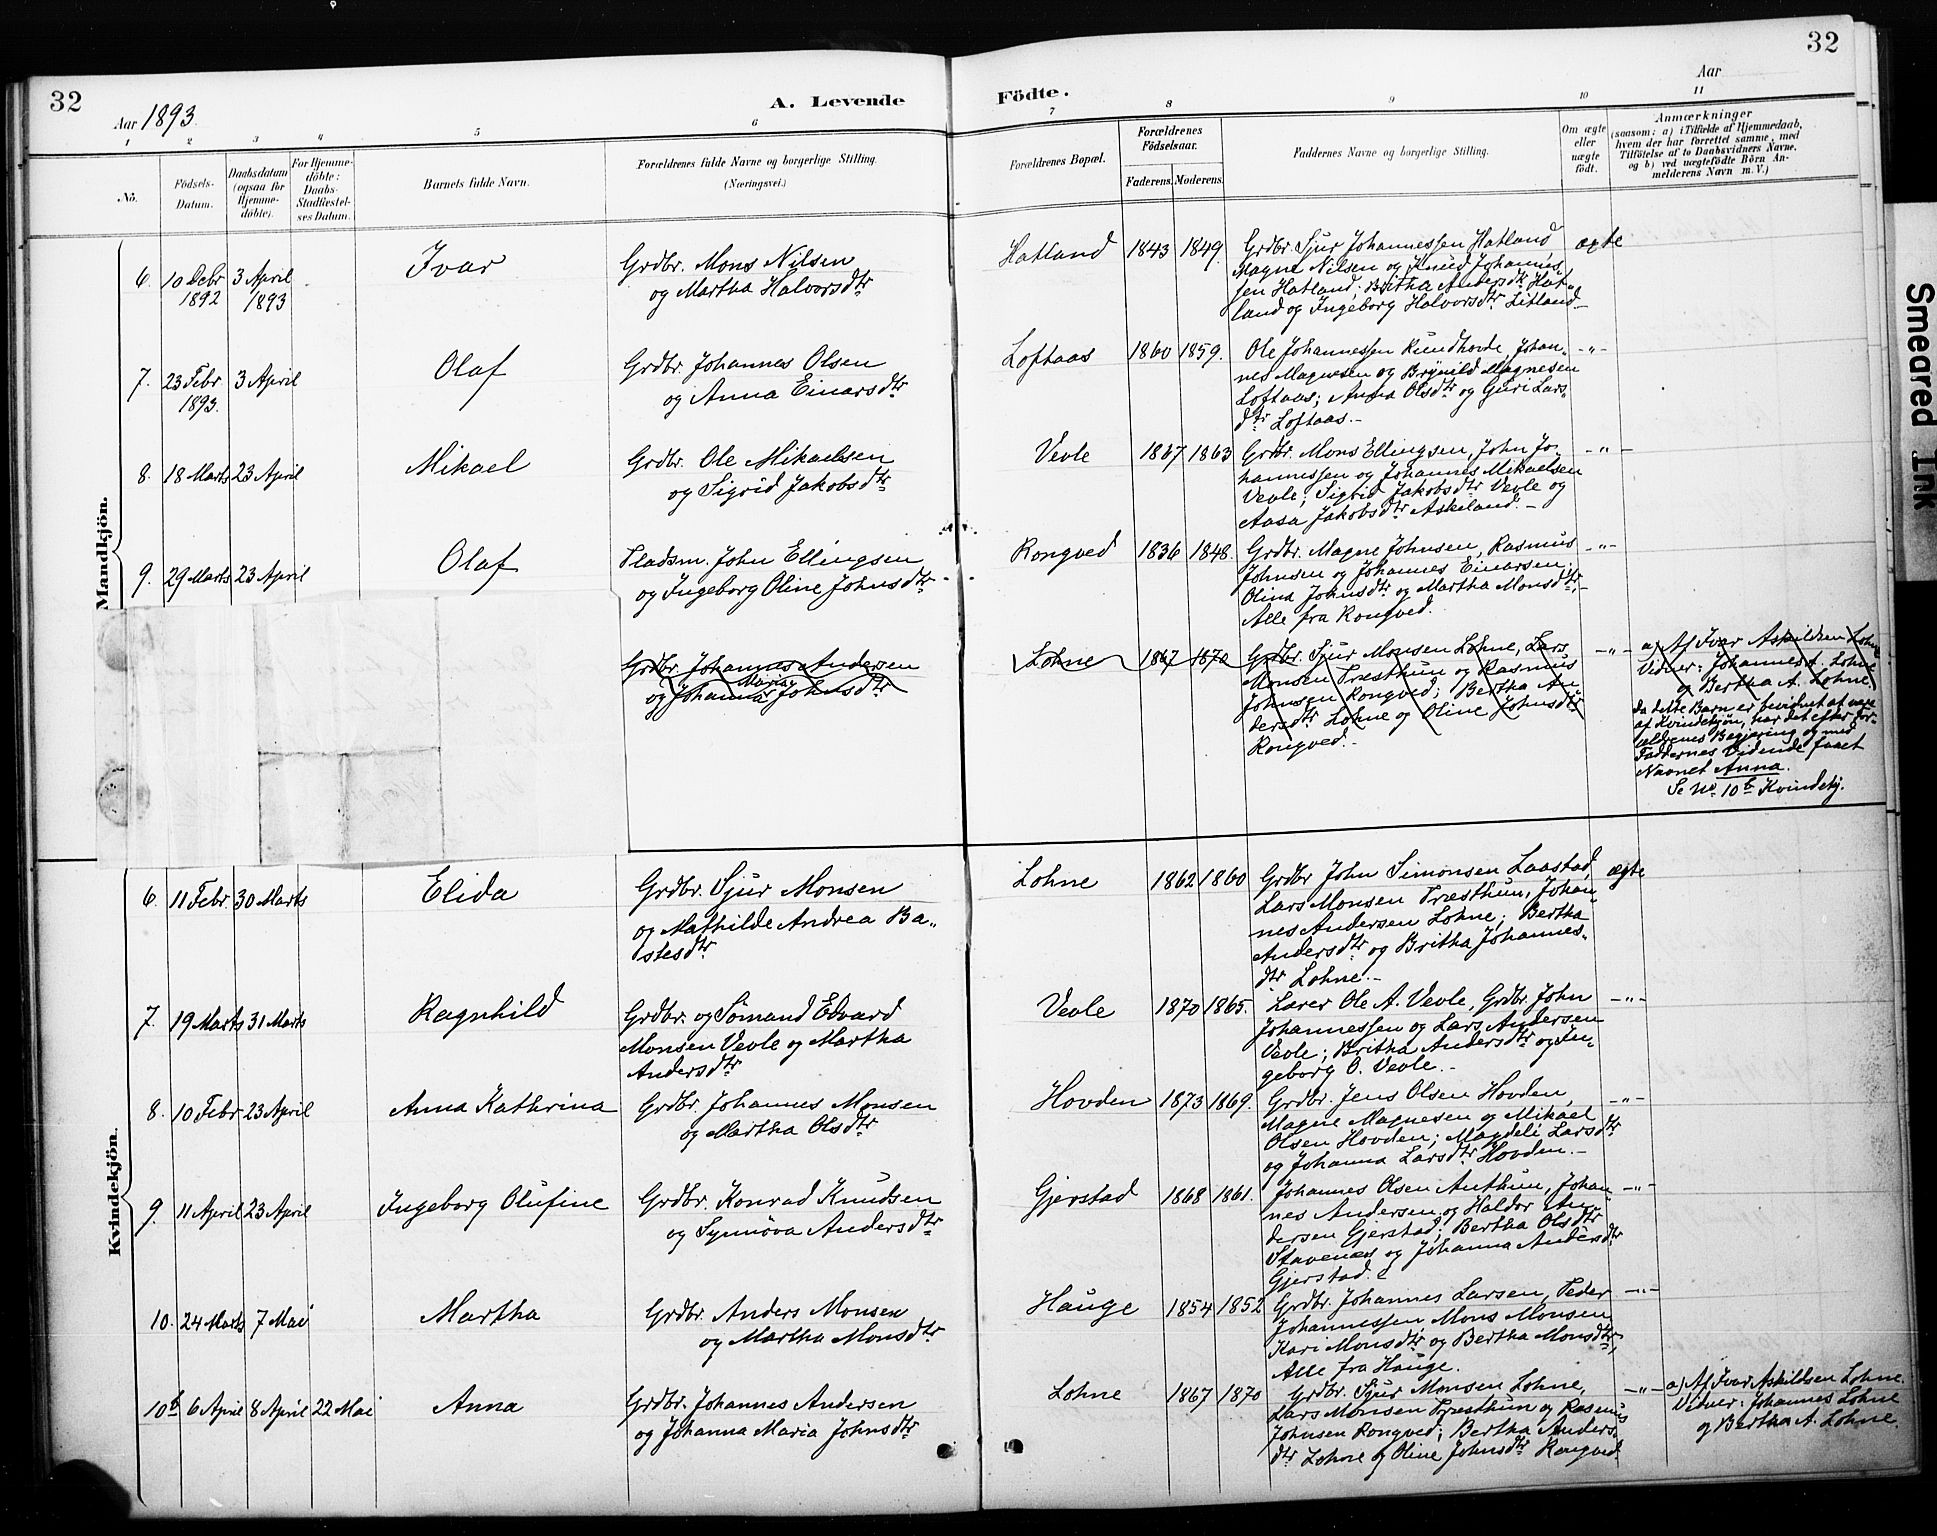 32
32
Aar 1893.
A. Levende
Födte.
Aar
1
2
3
4
5
6
7
8
9
10
11
No.
Födsels-
Datum.
Daabsdatum
(ogsaa for
Hjemme-
döbte).
For Hjemme-
döbte:
Daabs-
Stadfæstel-
ses Datum.
Barnets fulde Navn.
Forældrenes fulde Navne og borgerlige Stilling.
(Næringsvei.)
Forældrenes Bopæl.
Forældrenes
Födselsaar.
Faderens.
Moderens.
Faddernes Navne og borgerlige Stilling.
Om ægte
eller
uægte
födt.
Anmærkninger
(saasom: a) i Tilfælde af Hjemmedaab,
hvem der har forrettet samme, med
Tilföielse af to Daabsvidners Navne,
og b) ved uægtefödte Börn An-
melderens Navn m. V.)
Mandkjön.
6. 10 Debr 3 April Ivar Grdbr. Mons Nilsen Hatland 1843 1849. Grdbr. Sjur Johannessen Hatland ægte
1892 1893 og Martha Halvorsdtr Magne Nilsen og Knud Johannes-
sen Hatland; Britha Andersdtr Hat-
land og Ingeborg Halvorsdtr Litland.-
7. 23 Febr 3 April Olaf Grdbr. Johannes Olsen Loftaas 1860 1859. Ole Johannessen Rundhovde, Johan- -"-
1893. og Anna Einarsdtr nes Magnesen og Brynild Magnesen
Loftaas; Anna Olsdtr og Guri Lars-
dtr Loftaas.-
8. 18 Marts 23 April Mikael Grdbr. Ole Mikaelsen Vevle 1867 1863 Grdbr. Mons Ellingsen, John Jo- -"-
og Sigrid Jakobsdtr hannessen og Johannes Mikaelsen
Vevle; Sigrid Jakobsdtr Vevle og
Aasa Jakobsdtr Askeland.-
9. 29 Marts 23 April Olaf Pladsm. John Ellingsen Rongved 1836 1848. Grdbr. Magne Johnsen, Rasmus -"-
og Ingeborg Oline Johnsdtr Johnsen og Johannes Einarsen;
Olina Johnsdtr og Martha Monsdtr,
Alle fra Rongved.
Grdbr. Johannes Andersen Lohne 1867 1870 Grdbr. Sjur Monsen Lohne, Lars -"- a) Af Ivar Askildsen Lohne
Maria
og Johanna Johnsdtr Monsen Træsthun og Rasmus Vidner: Johannes A. Lohne
Johnsen Rongved; Bertha An- og Bertha A. Lohne.
dersdtr Lohne og Oline Johnsdtr
Rongved.-
Da dette Barn er bevidnet at være
af Kvindekjøn, har det efter For-
ældrenes Begjæring og med
Faddernes Vidende faaet
Navnet Anna.
Se No 10b Kvindekj.
Kvindekjön.
6. 11 Febr. 30 Marts Elida Grdbr. Sjur Monsen Lohne 1862 1860 Grdbr John Simonsen Laastad, ægte
og Mathilde Andrea Ba- Lars Monsen Træsthun, Johan-
stesdtr nes Andersen Lohne; Bertha
Andersdtr og Britha Johannes-
dtr Lohne.-
7. 19 Marts 31 Marts Ragnhild Grdbr. og Sømand Edvard Vevle 1870 1865. Lærer Ole A. Vevle, Grdbr. John -"-
Monsen Vevle og Martha Johannessen og Lars Andersen
Andersdtr Vevle; Britha Andersdtr og In-
geborg O. Vevle.-
8. 10 Febr 23 April Anna Kathrina Grdbr. Johannes Monsen Hovden 1873 1869. Grdbr. Jens Olsen Hovden, -"-
og Martha Olsdtr Magne Magnesen og Mikael
Olsen Hovden; Magdeli Larsdtr
og Johanna Larsdtr Hovden.-
9. 11 April 23 April Ingeborg Olufine Grdbr. Konrad Knudsen Gjerstad 1868 1861. Johannes Olsen Austhun, Johan- -"-
og Synnøva Andersdtr nes Andersen og Haldor An-
dersen Gjerstad; Bertha Olsdtr
Stavenes og Johanna Andersdtr
Gjerstad.
10. 24 Marts 7 Mai Martha Grdbr. Anders Monsen Hauge 1854 1852 Grdbr. Johannes Larsen, Peder -"-
og Martha Monsdtr Johannessen, Mons Monsen
Kari Monsdtr og Bertha Monsdtr,
Alle fra Hauge.
10b 6 April 8 April 22 Mai Anna Grdbr. Johannes Andersen Lohne 1867 1870 Grdbr. Sjur Monsen Lohne, -"- a) Af Ivar Askildsen Lohne.
og Johanna Maria Johnsdtr Lars Monsen Træsthun og Rasmus Vidner: Johannes Lohne
Johnsen Rongved; Bertha Anders- og Bertha A. Lohne.
dtr Lohne og Oline Johnsdtr Rongved.
Smeared Ink